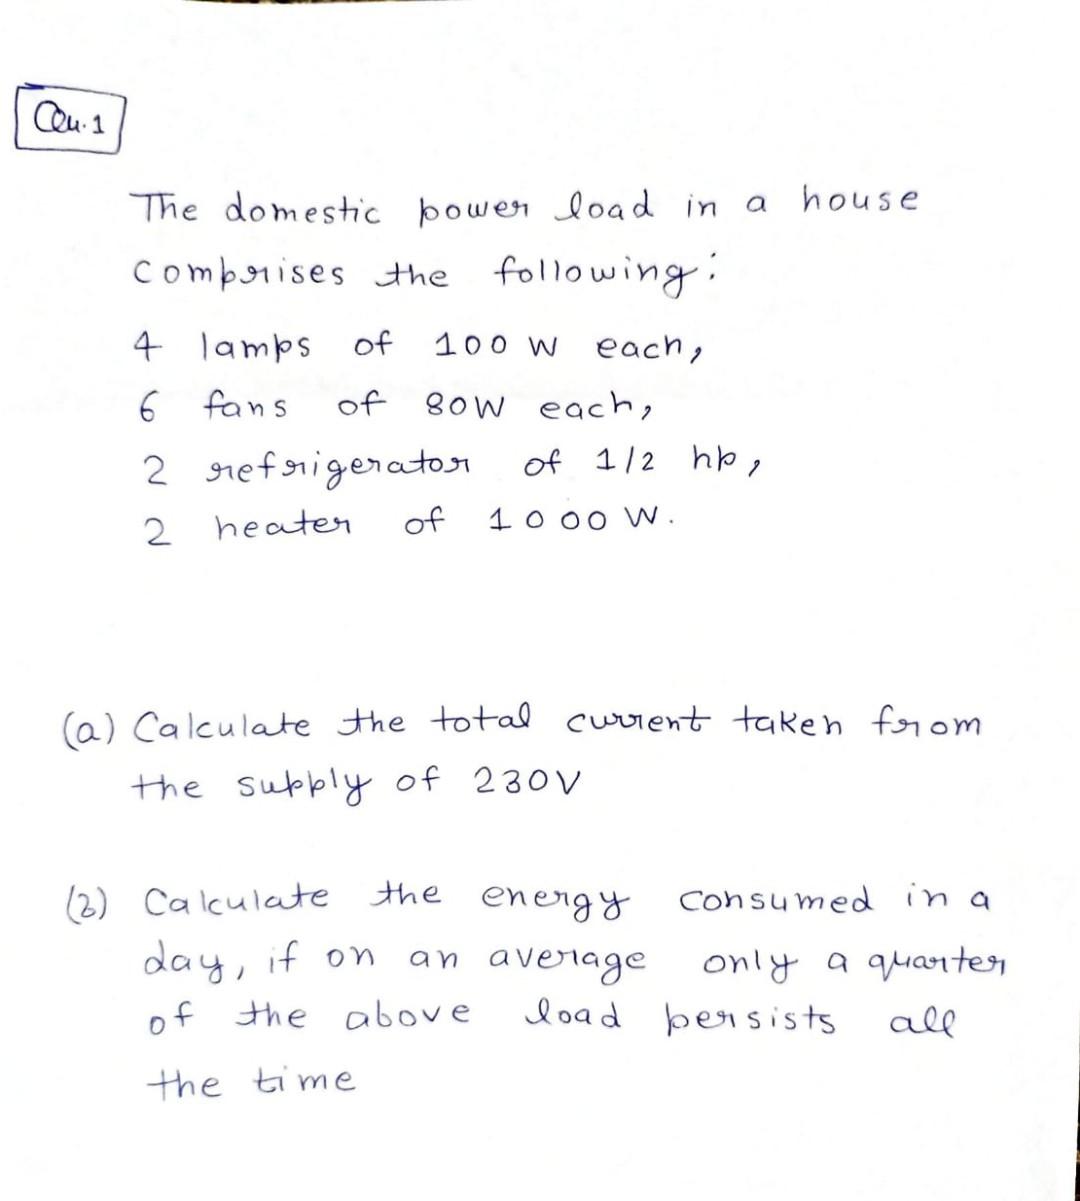 Qu.1
The domestic power load in a house
comprises the following:
4 lamps of 100 W each,
6 fans of 80W each,
2 refrigerator of 1/2 hp,
2 heater of 1000 W.
(a) Calculate the total current taken from
the supply of 230V
(2) Calculate the energy consumed in a
day, if on an average only a quarter
of the above load persists all
the time